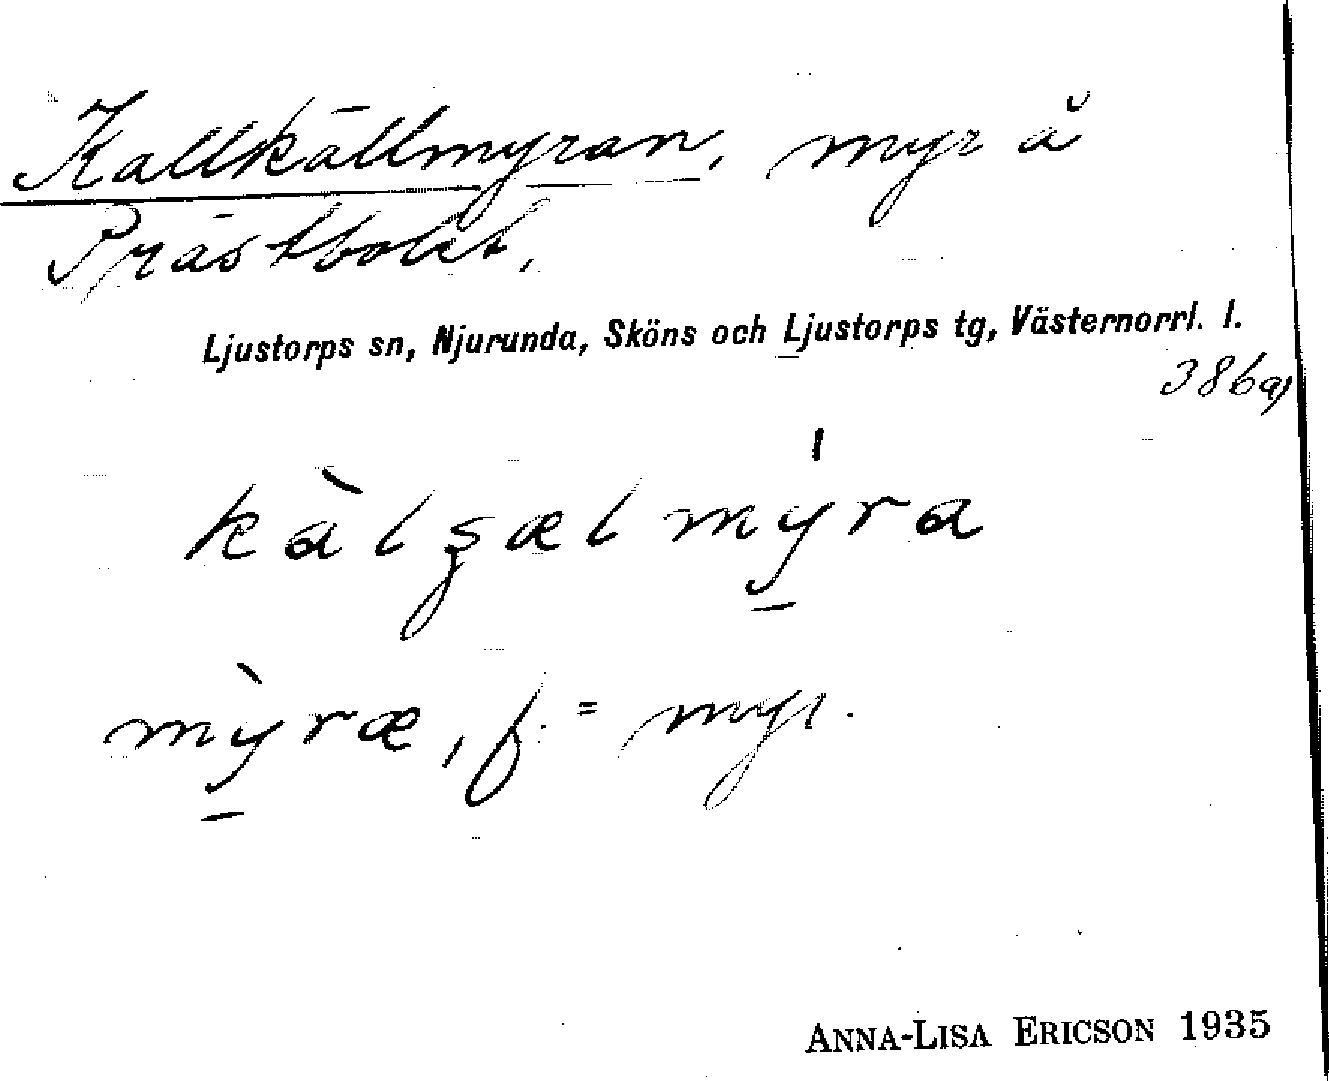 Kallkällmyran, myr å
Prästbolet.
Ljustorps sn, Njurunda, Sköns och Ljustorps tg, Västernorrl. l.
386a)
kàlʂælmýra
mỳræ, f. = myr.
ANNA-LISA ERICSON 1935